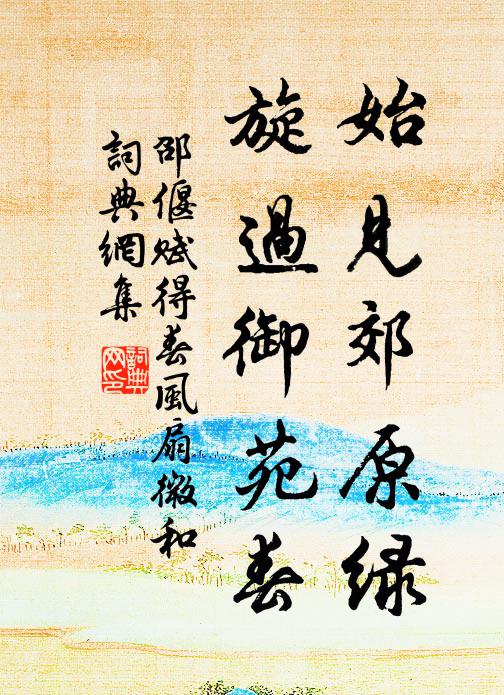 始見郊原綠
旋過御苑春
邵偃赋得春風扇微和
詞典網集
詞典
网印